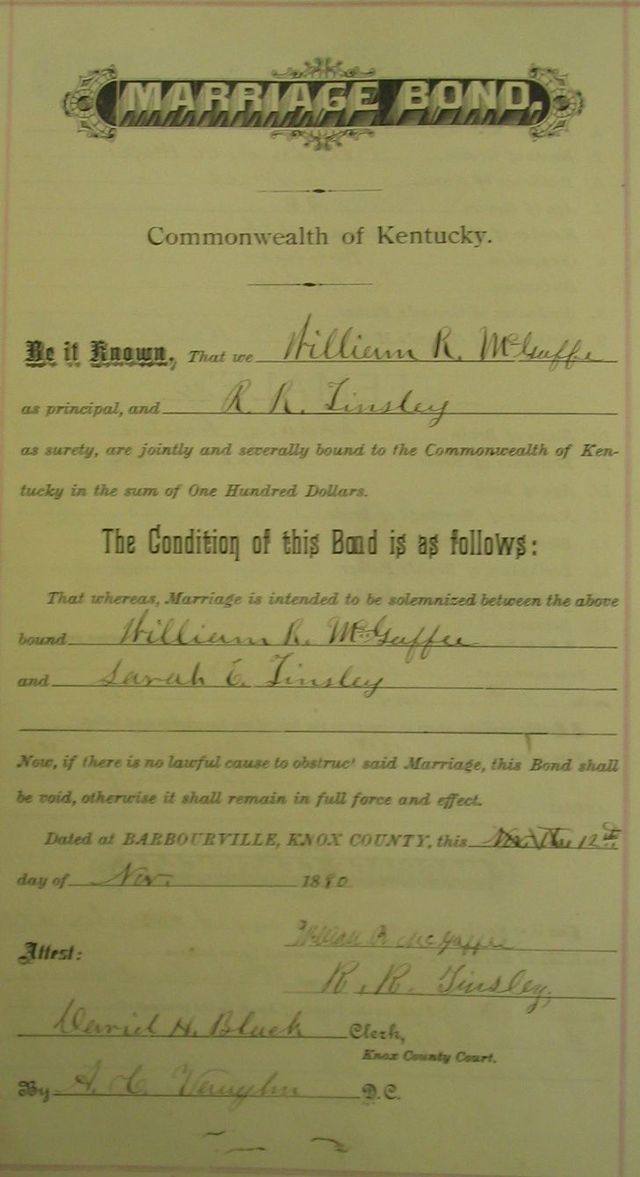 MARRIAGE BOND,
Commonwealth of Kentucky.
Be it Known, That we William R. McGuffe
as principal, and R. R. Tinsley
as surety, are jointly and severally bound to the Commonwealth of Ken-
tucky in the sum of One Hundred Dollars.
The Condition of this Bond is as follows:
That whereas, Marriage is intended to be solemnized between the above
bound William R. McGuffee
and Sarah E. Tinsley
Now, if there is no lawful cause to obstruc' said Marriage, this Bond shall
be void, otherwise it shall remain in full force and effect.
Dated at BARBOURVILLE, KNOX COUNTY, this 12th
day of Nov. 1890
William R McGuffee
Attest:
R. R. Tinsley,
David H. Black Clerk,
Knox County Court.
By A. C. Vaughn D.C.